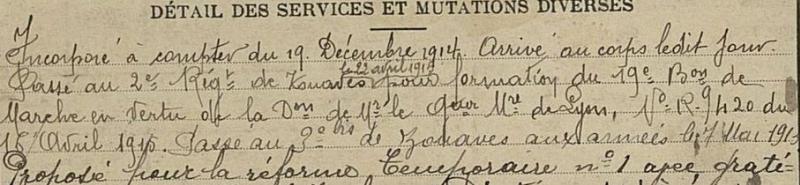 DÉTAIL DES SERVICES ET MUTATIONS DIVERSES
Incorporé à compter du 19 Décembre 1914. Arrivé au corps ledit jour.
le 22 avril 1915
Passé au 2e Régt de Zouaves pour formation du 19e Bon de
Marche en vertu de la Don de Mr le Gour Mre de Lyon, No R. 9420 du
Avril 1915. Passé au 3e de Zouaves aux armées le 7 Mai 1915
Proposé pour la réforme Temporaire no 1 avec grati-